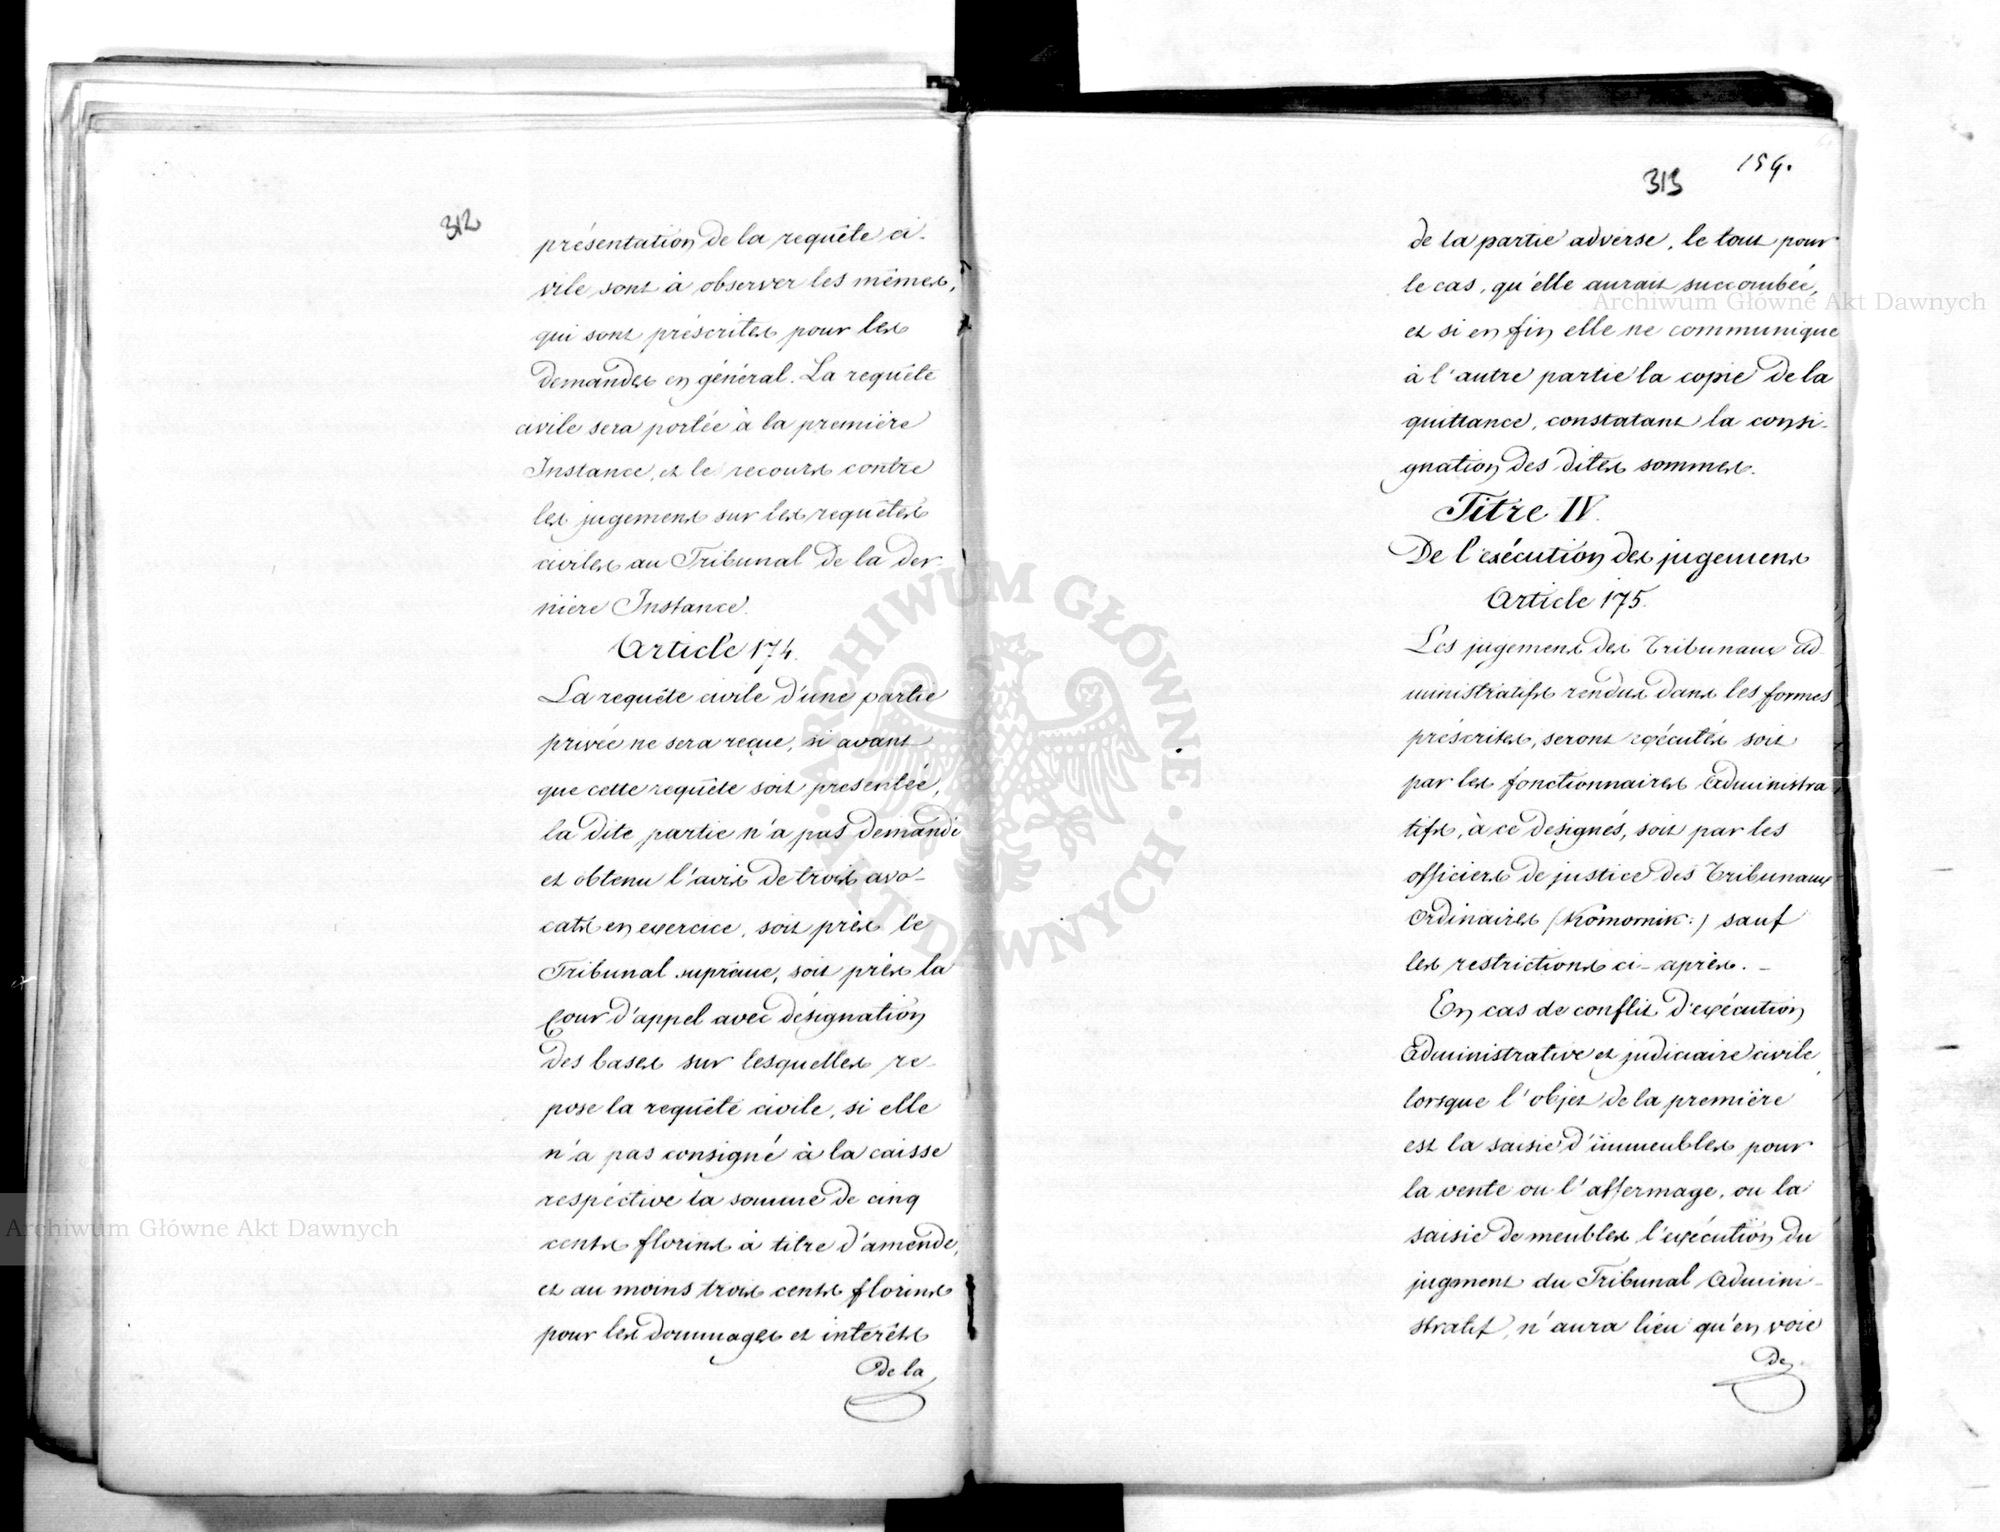 312
présentation de la requête ci-
vile sont à observer les mêmes,
qui sont préscrites pour les
demandes en général. La requête
civile sera portée à la première
Instance, et le recours contre
les jugemens sur les requêtes
civiles au Tribunal de la der
nière Instance.
Article 174.
La requête civile d'une partie
privée ne sera reçue, si avant
que cette requête soit presentée,
la dite partie n'a pas demandé
et obtenu l'avis de trois avo-
cats en exercice, soit près le
Tribunal suprème, soit près la
Cour d'appel avec désignation
des bases sur lesquelles re-
pose la requête civile, si elle
n'a pas consigné à la caisse
respéctive la somme de cinq
cents florins à titre d'amende,
et au moins trois cents florins
pour les dommages et interêts
de la
313
159.
de la partie adverse, le tout pour
le cas, qu'elle aurait succombée,
et si en fin elle ne communique
à l'autre partie la copie de la
quittance, constatant la consi-
gnation des dites sommes.
Titre IV.
De l'exécution des jugemens
Article 175.
Les jugemens des Tribunaux ad
ministratifs rendus dans les formes
préscrites, seront exécutés soit
par les fonctionnaires administra
tifs, à ce designés, soit par les
officiers de justice des Tribunaux
ordinaires (Komornik:) sauf
les restrictions ci-après. -
En cas de conflit d'exécution
administrative et judiciaire civile,
lorsque l'objet de la première
est la saisie d'immeubles pour
la vente ou l'affermage, ou la
saisie de meubles l'exécution du
jugment du Tribunal admini-
stratif, n'aura lieu qu'en voie
de
Archiwum Główne Akt Dawnych
Archiwum Główne Akt Dawnych
ARCHIWUM GŁÓWNE · AKT DAWNYCH ·